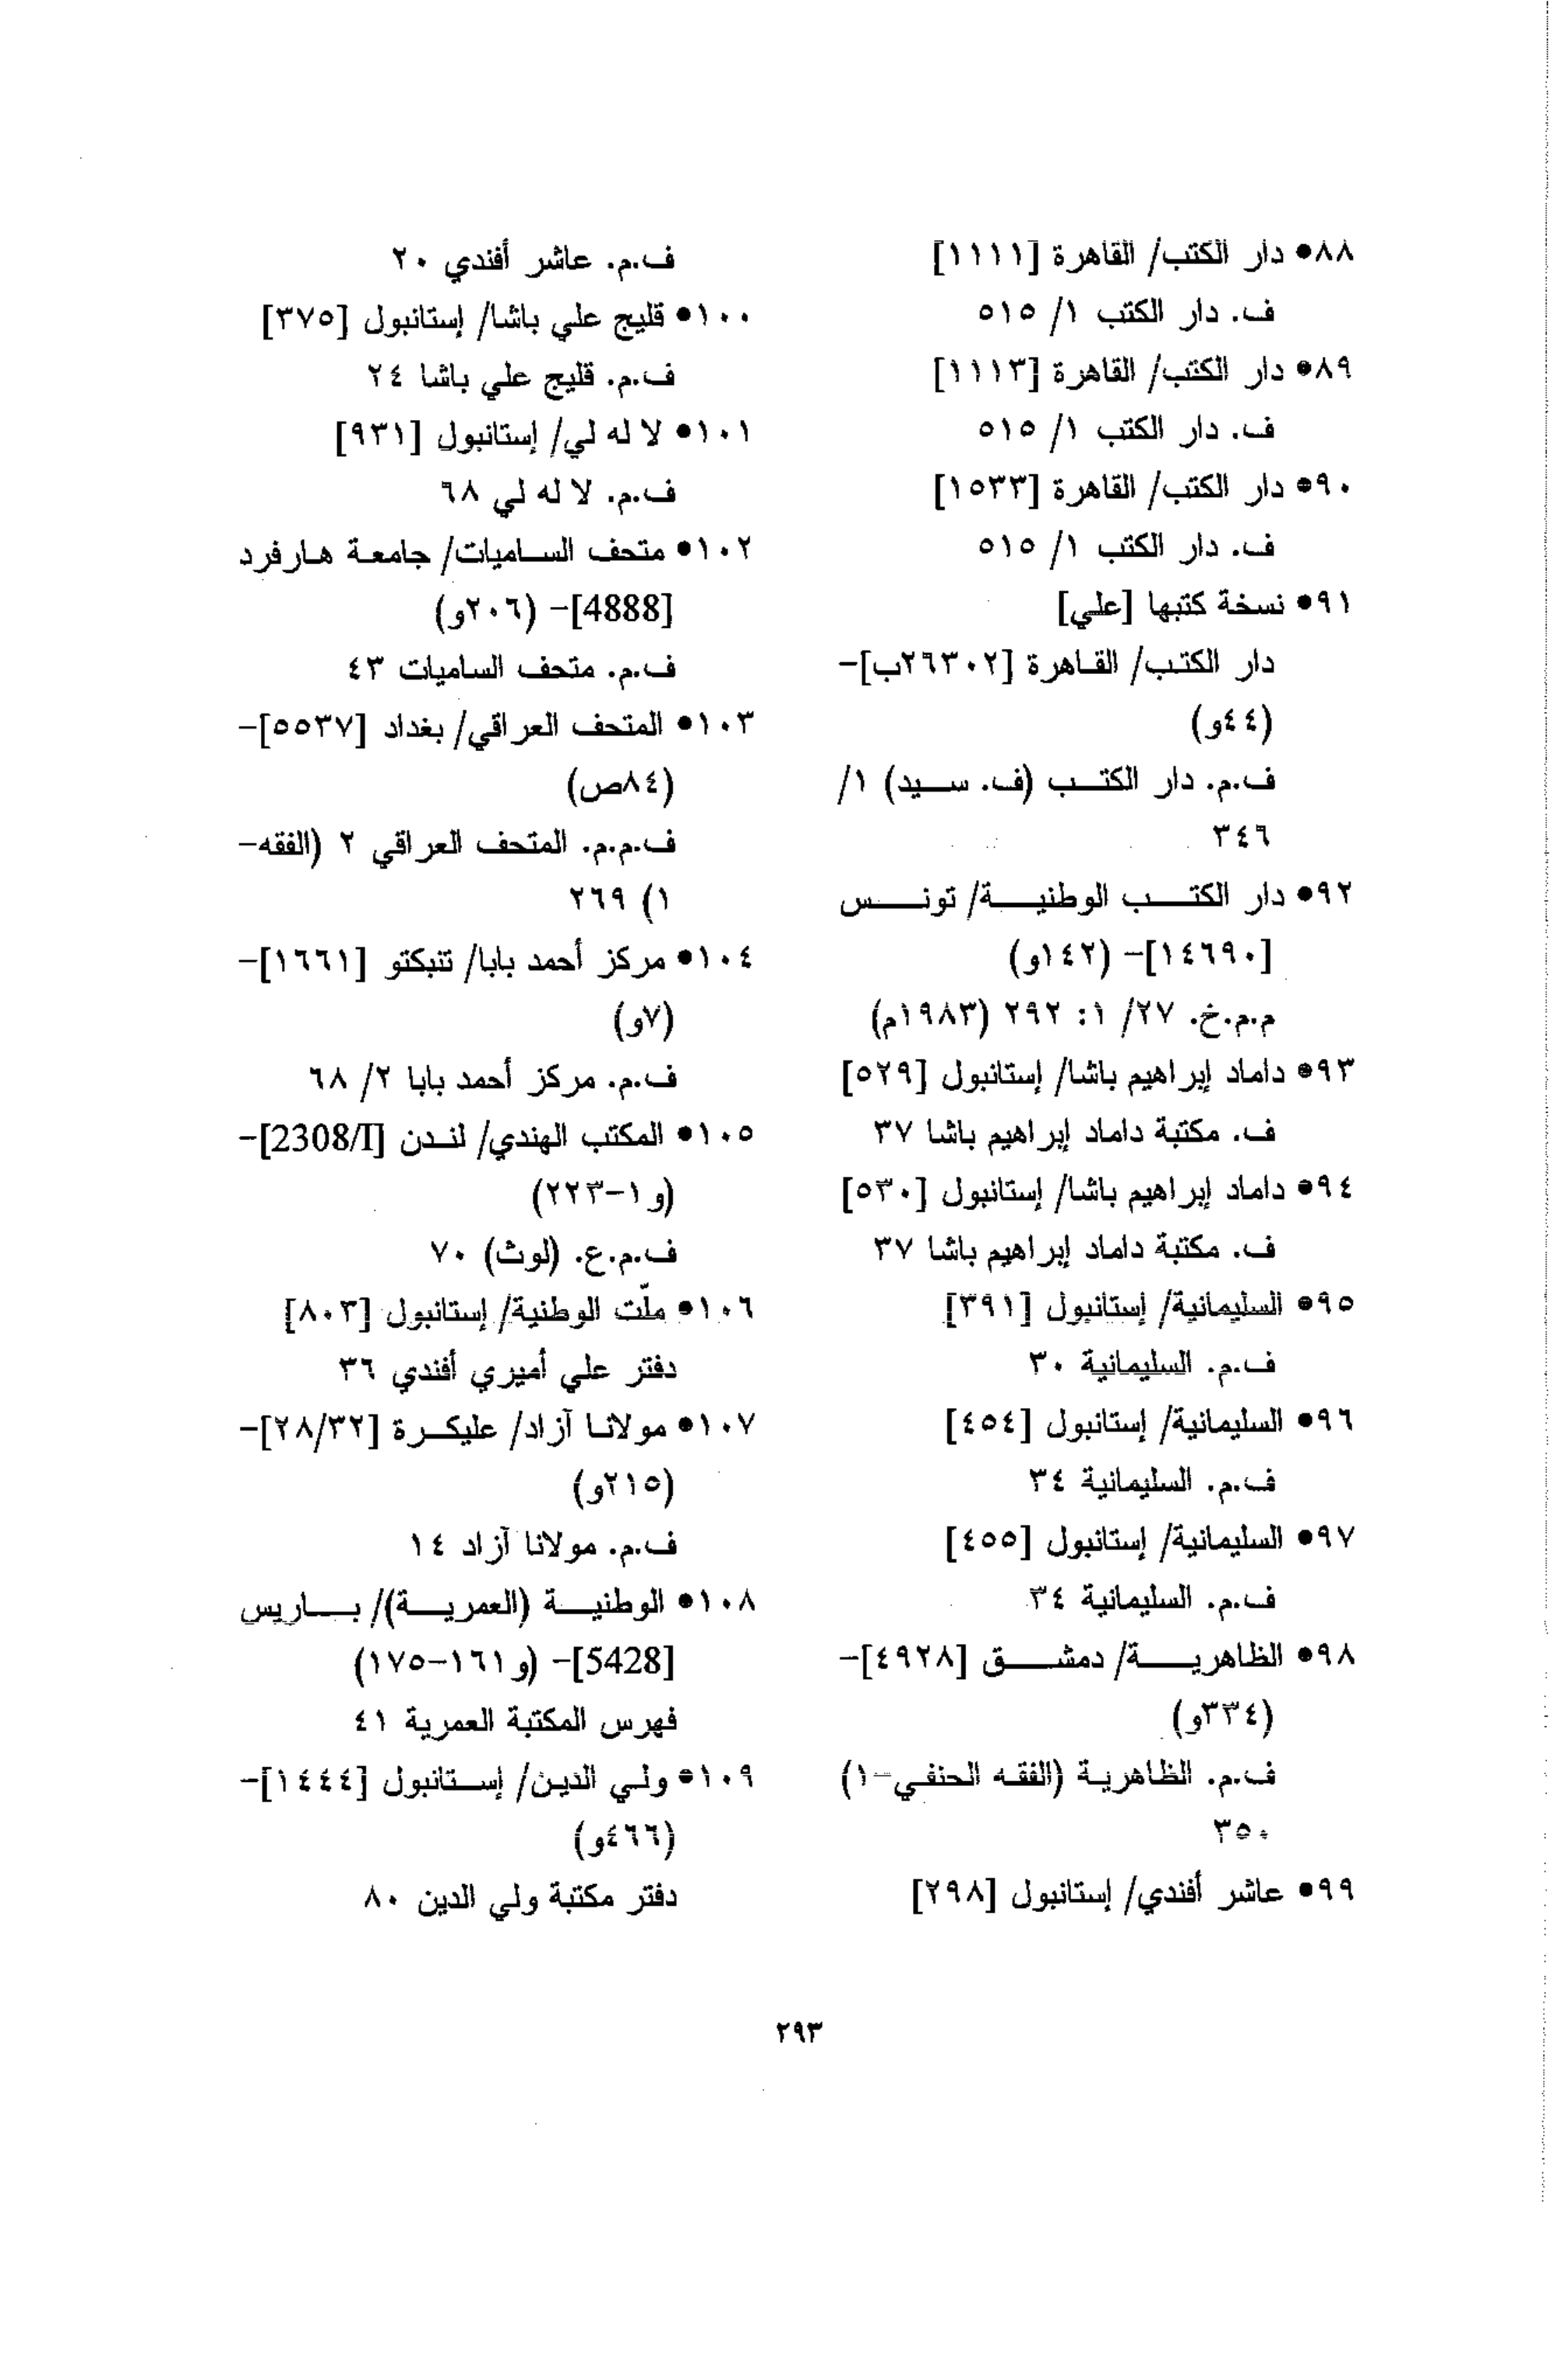 ٨٨• دار الكتب/ القاهرة [١١١١]
ف. دار الكتب ١/ ٥١٥
٨٩• دار الكتب/ القاهرة [١١١٣]
ف. دار الكتب ١/ ٥١٥
٩٠• دار الكتب/ القاهرة [١٥٣٣]
ف. دار الكتب ١/ ٥١٥
٩١• نسخة كتبها [علي]
دار الكتب/ القاهرة [٢٦٣٠٢ب]-
(٤٤و)
ف.م. دار الكتب (ف. سيد) ١/
٣٤٦
٩٢• دار الكتب الوطنية/ تونس
[١٤٦٩٠]- (١٤٢و)
م.م.خ. ٢٧/ ١: ٢٩٢ (١٩٨٣م)
٩٣• داماد إبراهيم باشا/ إستانبول [٥٢٩]
ف. مكتبة داماد إبراهيم باشا ٣٧
٩٤• داماد إبراهيم باشا/ إستانبول [٥٣٠]
ف. مكتبة داماد إبراهيم باشا ٣٧
٩٥• السليمانية/ إستانبول [٣٩١]
ف.م. السليمانية ٣٠
٩٦• السليمانية/ إستانبول [٤٥٤]
ف.م. السليمانية ٣٤
٩٧• السليمانية/ إستانبول [٤٥٥]
ف.م. السليمانية ٣٤
٩٨• الظاهرية/ دمشق [٤٩٢٨]-
(٣٣٤و)
ف.م. الظاهرية (الفقه الحنفي-١)
٣٥٠
٩٩• عاشر أفندي/ إستانبول [٢٩٨]
ف.م. عاشر أفندي ٢٠
١٠٠• قليج علي باشا/ إستانبول [٣٧٥]
ف.م. قليج علي باشا ٢٤
١٠١• لا له لي/ إستانبول [٩٣١]
ف.م. لا له لي ٦٨
١٠٢• متحف الساميات/ جامعة هارفرد
[4888]- (٢٠٦و)
ف.م. متحف الساميات ٤٣
١٠٣• المتحف العراقي/ بغداد [٥٥٣٧]-
(٨٤ص)
ف.م.م. المتحف العراقي ٢ (الفقه-
١) ٢٦٩
١٠٤• مركز أحمد بابا/ تنبكتو [١٦٦١]-
(٧و)
ف.م. مركز أحمد بابا ٢/ ٦٨
١٠٥• المكتب الهندي/ لندن [2308/I]-
(و ١-٢٢٣)
ف.م.ع. (لوث) ٧٠
١٠٦• ملّت الوطنية/ إستانبول [٨٠٣]
دفتر علي أميري أفندي ٣٦
١٠٧• مولانا آزاد/ عليكرة [٢٨/٣٢]-
(٢١٥و)
ف.م. مولانا آزاد ١٤
١٠٨• الوطنية (العمرية)/ باريس
[5428]- (و ١٦١-١٧٥)
فهرس المكتبة العمرية ٤١
١٠٩• ولي الدين/ إستانبول [١٤٤٤]-
(٤٦٦و)
دفتر مكتبة ولي الدين ٨٠
٢٩٣